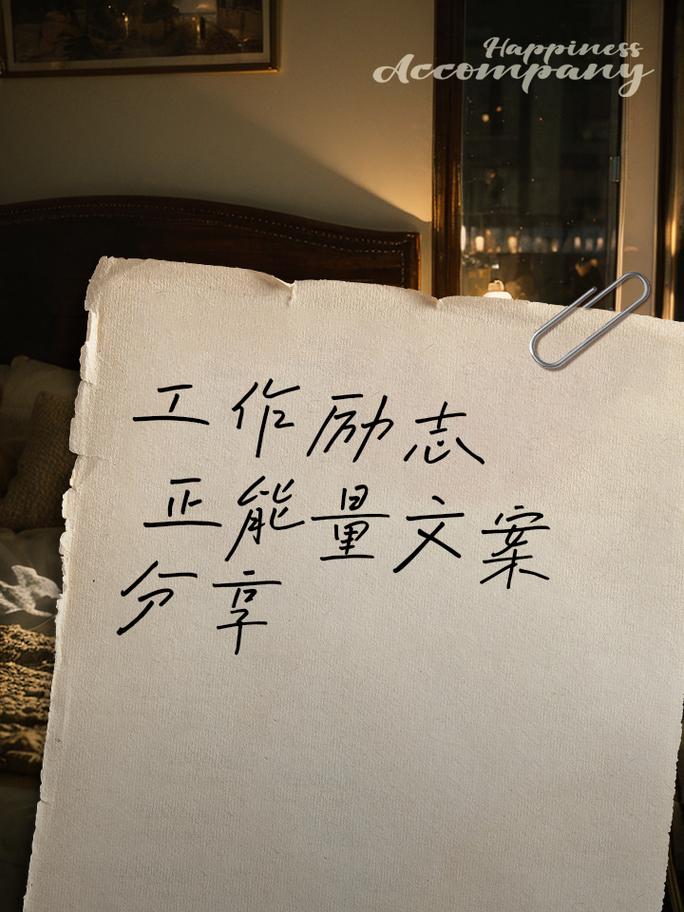 Happiness
Accompany
工作励志
正能量文案
分享